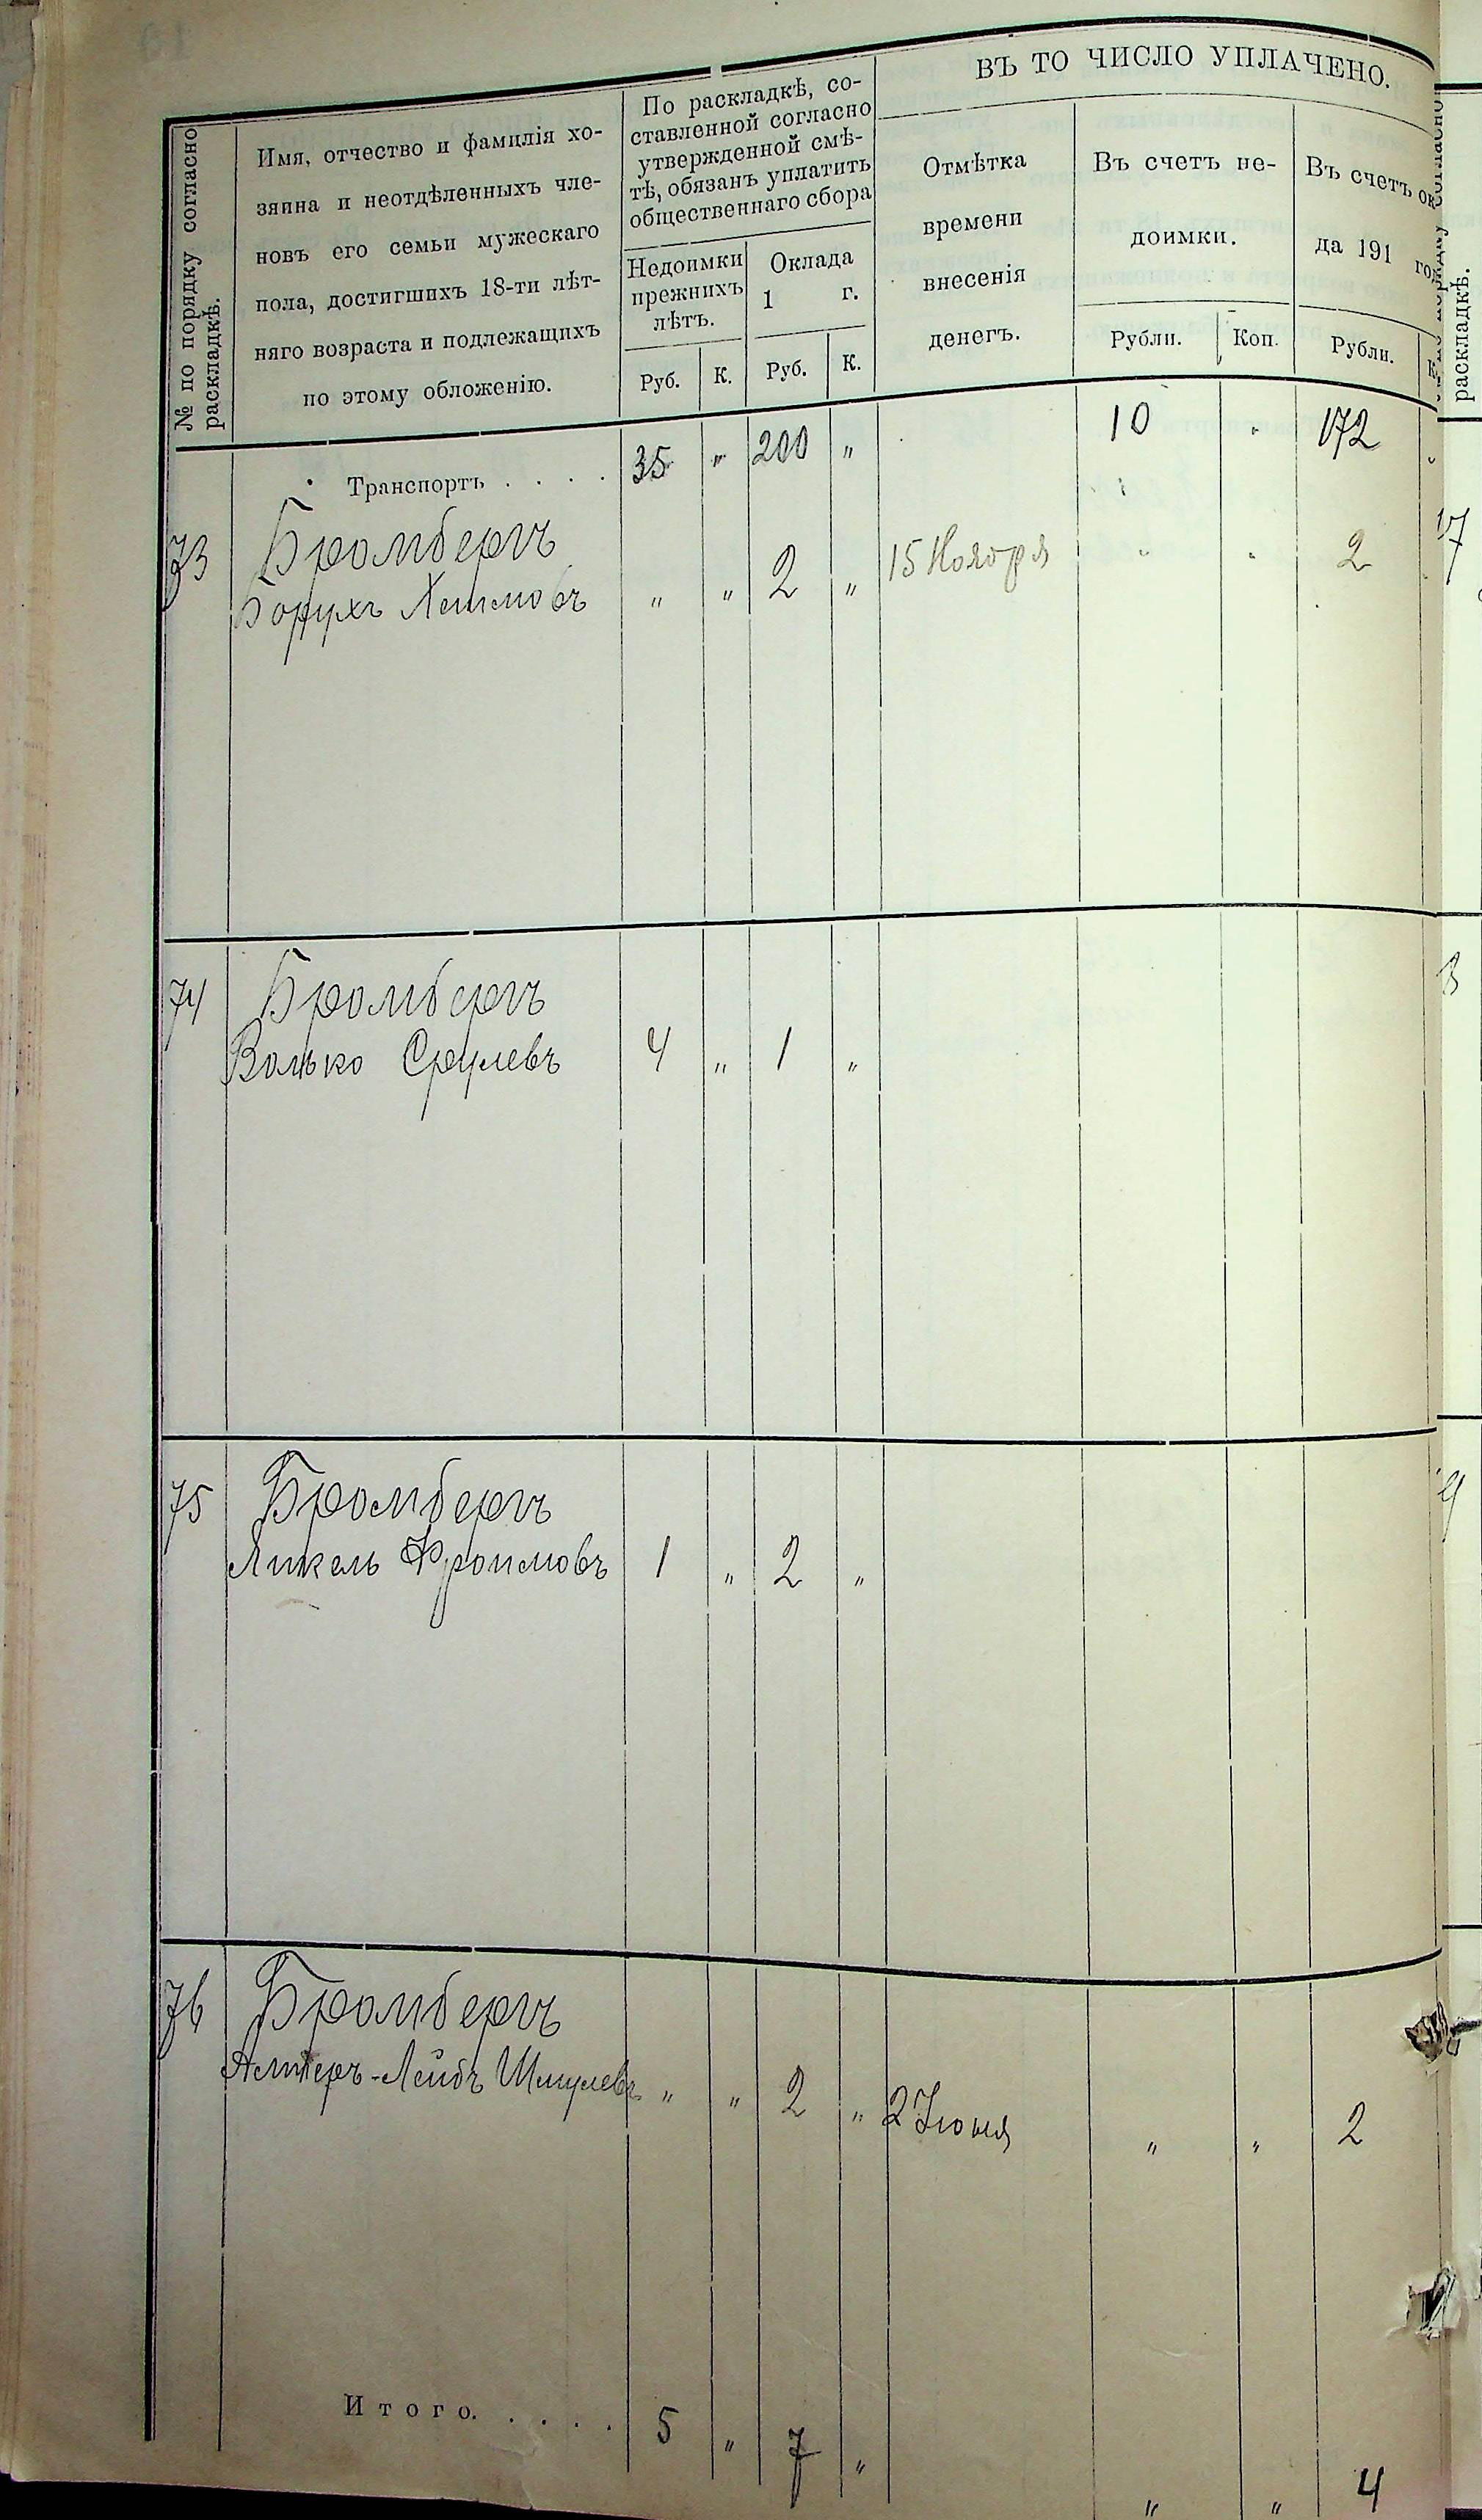 № по порядку согласно
раскладкѣ.
Имя, отчество и фамилія хо-
зяина и неотдѣленныхъ чле-
новъ его семьи мужескаго
пола, достигшихъ 18-ти лѣт-
няго возраста и подлежащихъ
по этому обложенію.
По раскладкѣ, со-
ставленной согласно
утвержденной смѣ-
тѣ, обязанъ уплатить
общественнаго сбора
Недоимки
прежнихъ
лѣтъ.
Оклада
1 г.
Руб. К. Руб. К.
ВЪ ТО ЧИСЛО УПЛАЧЕНО.
Отмѣтка
времени
внесенія
денегъ.
Въ счетъ не-
доимки.
Рубли. Коп.
Въ счетъ ок
да 191 год
Рубли. К
раскладкѣ.
Транспортъ . . . . 35 " 200 " 10 " 172 "
73 Бромбергъ
Борухъ Хаимовъ " " 2 " 15 Ноября " " 2
74 Бромбергъ
Волько Срулевъ 4 " 1 "
75 Бромбергъ
Янкель Фроимовъ 1 " 2 "
76 Бромбергъ
Алтеръ-Лейбъ Шмулевъ " " 2 " 2 Іюня " " 2
Итого. . . . . 5 " 7 " " " 4